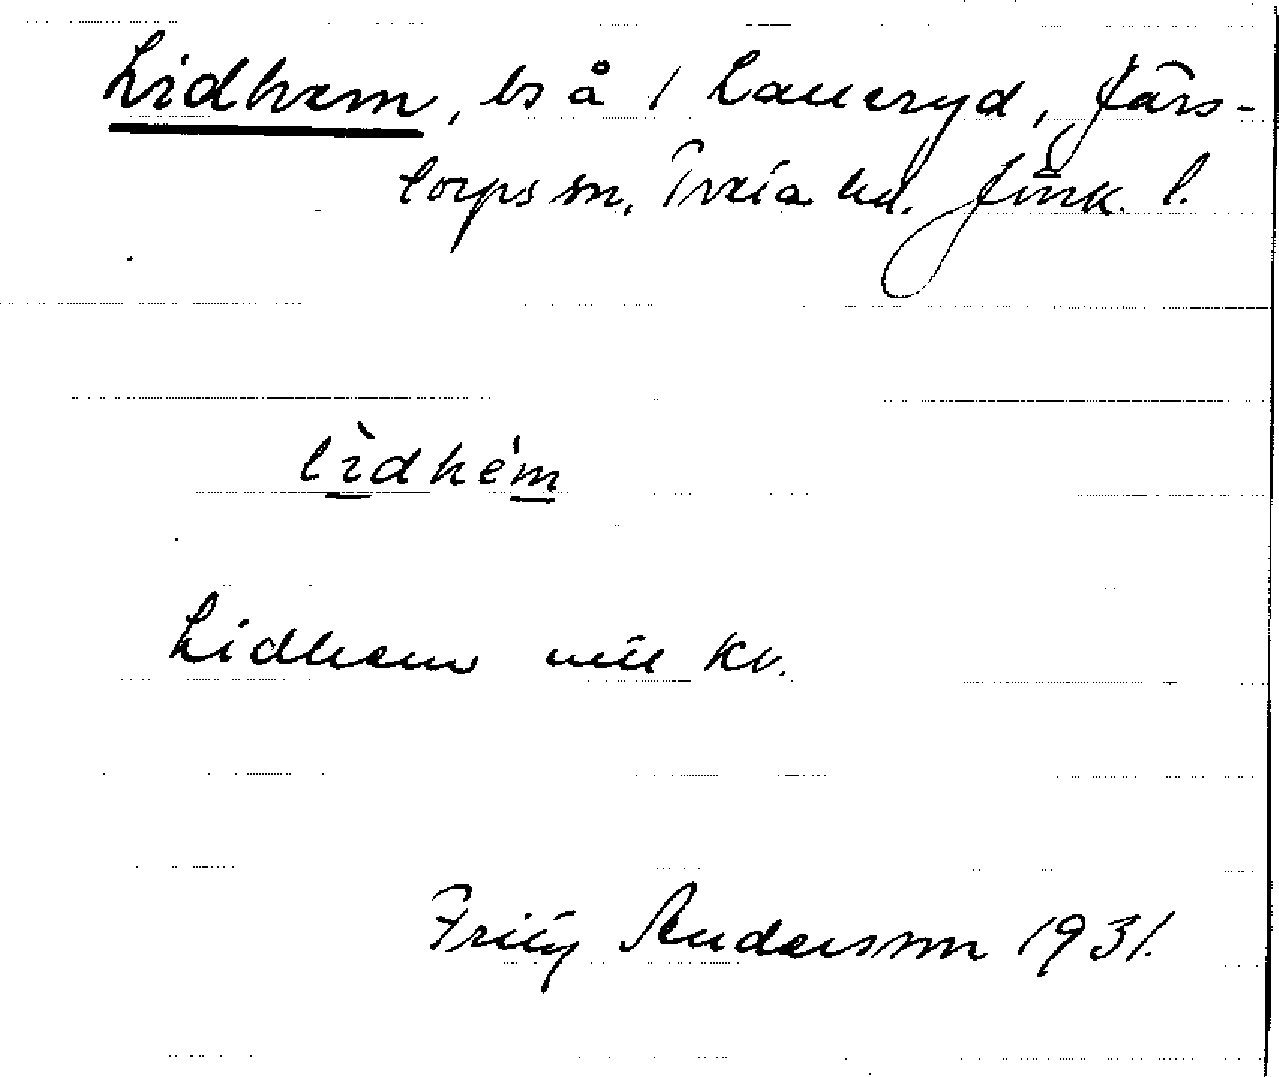 Lidhem, ls å 1 Lanneryd, Järs-
torps sn, Tveta hd. Jönk. l.
lìdhém
Lidhem utt. kv.
Fritz Andersson 1931.